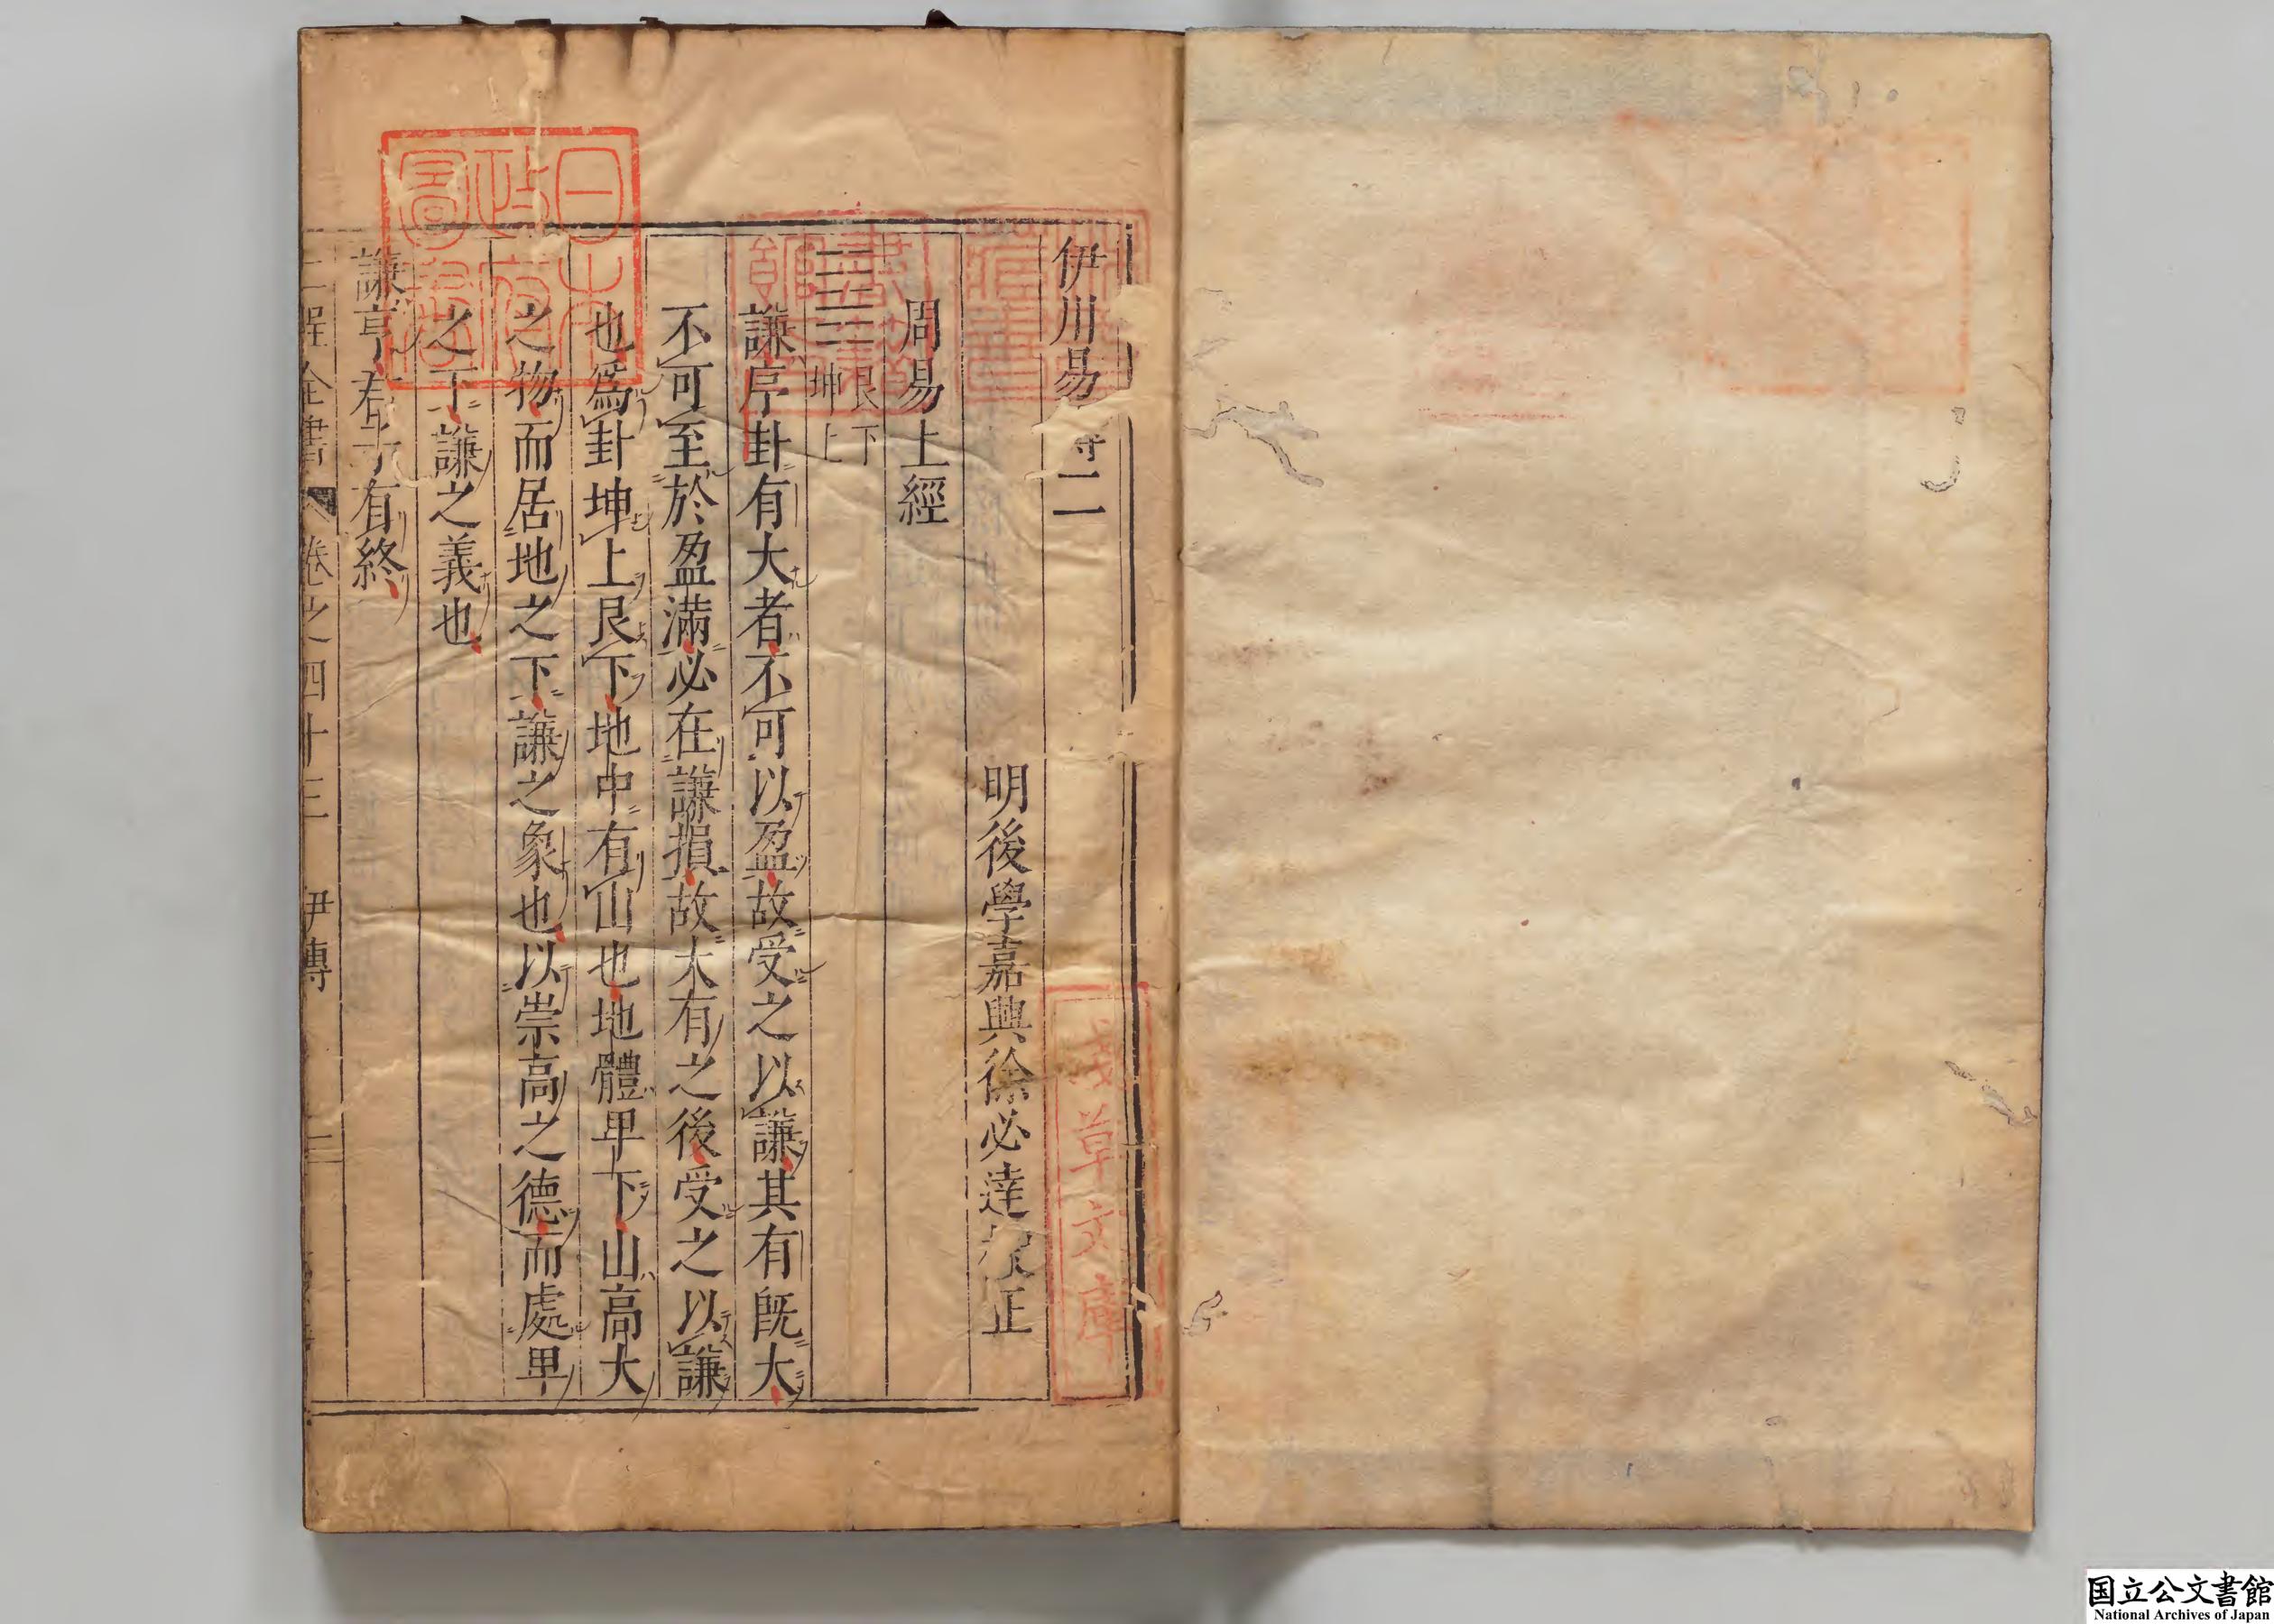 伊川易傳二
明後學嘉興徐必達校正
周易上經
䷎艮下坤上
謙序卦有大者不可以盈故受之以謙其有旣大
不可至於盈滿必在謙損故大有之後受之以謙
也爲卦坤上艮下地中有山也地體卑下山高大
之物而居地之下謙之象也以崇高之德而處卑
之下謙之義也
謙亨君子有終
二程全書 卷之四十三 伊傳 一
日本政府圖書
淺草文庫
国立公文書館
National Archives of Japan